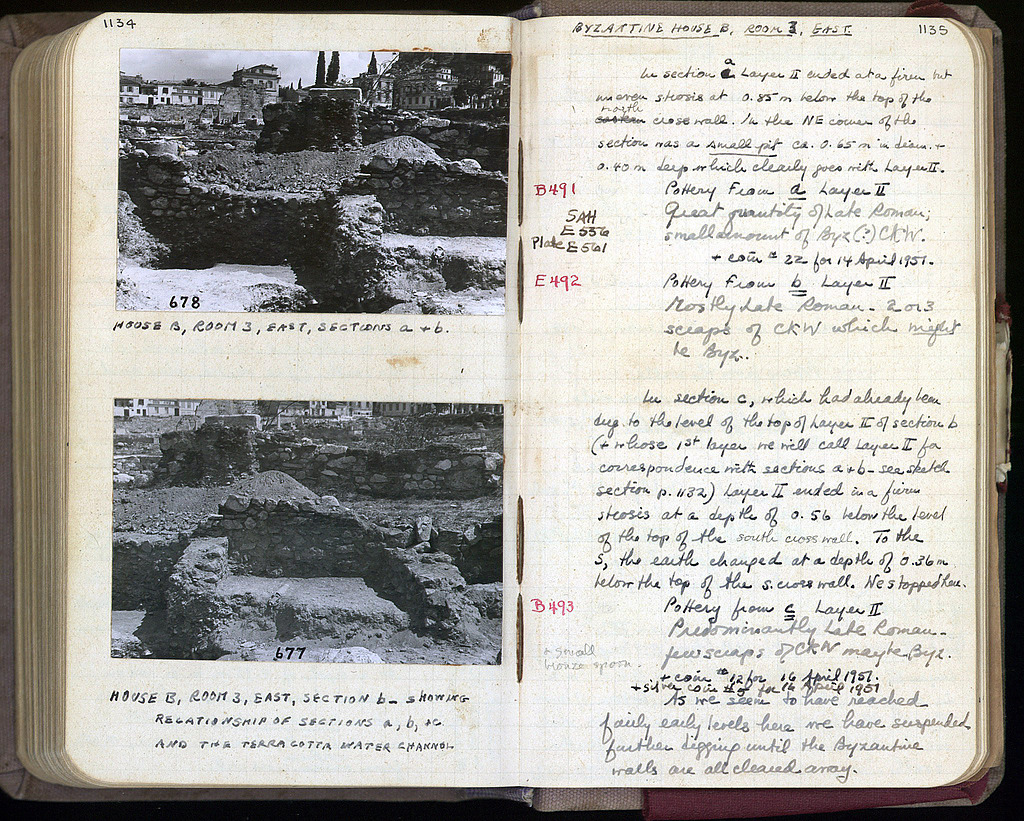 1134
678
HOUSE B, ROOM 3, EAST, SECTIONS a + b.
677
HOUSE B, ROOM 3, EAST, SECTION b - SHOWING
RELATIONSHIP OF SECTIONS a, b, + c.
AND THE TERRACOTTA WATER CHANNEL
BYZANTINE HOUSE B, ROOM 3, EAST
1135
In section a Layer II ended at a firm but
uneven stosis at 0.85 m below the top of the
north
eastern cross wall. In the NE corner of the
section was a small pit ca. 0.65 m in diam. +
0.40 m deep which clearly goes with Layer II.
B491
Pottery From a Layer II
SAH
E 536
Plate E 561
Great quantity of Late Roman;
small amount of Byz (?) CKW.
+ coin # 22 for 14 April 1951.
E492
Pottery From b Layer II
Mostly Late Roman - 2 or 3
scraps of CKW which might
be Byz..
In section c, which had already been
dug to the level of the top of Layer II of section b
(+ whose 1st layer we will call Layer II for
correspondence with sections a + b - see sketch
section p. 1132) Layer II ended in a firm
stosis at a depth of 0.56 below the level
of the top of the south cross wall. To the
S, the earth changed at a depth of 0.36 m
below the top of the S. cross wall. We stopped here.
B493
Pottery from c Layer II
Predominantly Late Roman -
few scraps of CKW maybe Byz.
+ small
bronze spoon.
+ coin # 12 for 16 April 1951.
+ silver coin # for 16 April 1951
As we seem to have reached
fairly early levels here we have suspended
further digging until the Byzantine
walls are all cleared away.